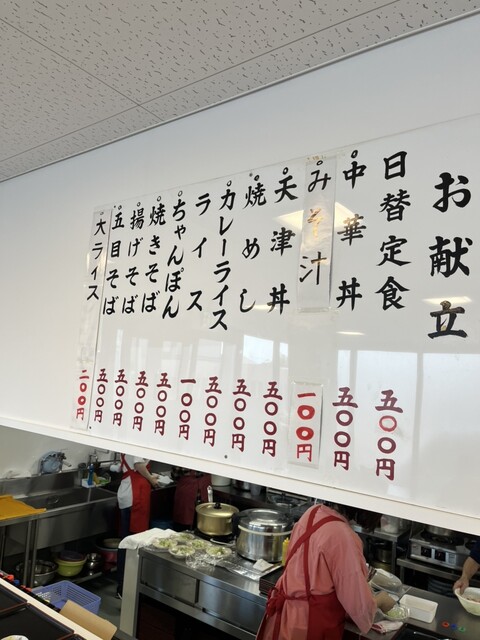 お献立
日替定食 五〇〇円
中華丼 五〇〇円
みそ汁 一〇〇円
天津丼 五〇〇円
焼めし 五〇〇円
カレーライス 五〇〇円
ライス 一〇〇円
ちゃんぽん 五〇〇円
焼きそば 五〇〇円
揚げそば 五〇〇円
五目そば 五〇〇円
大ライス 二〇〇円